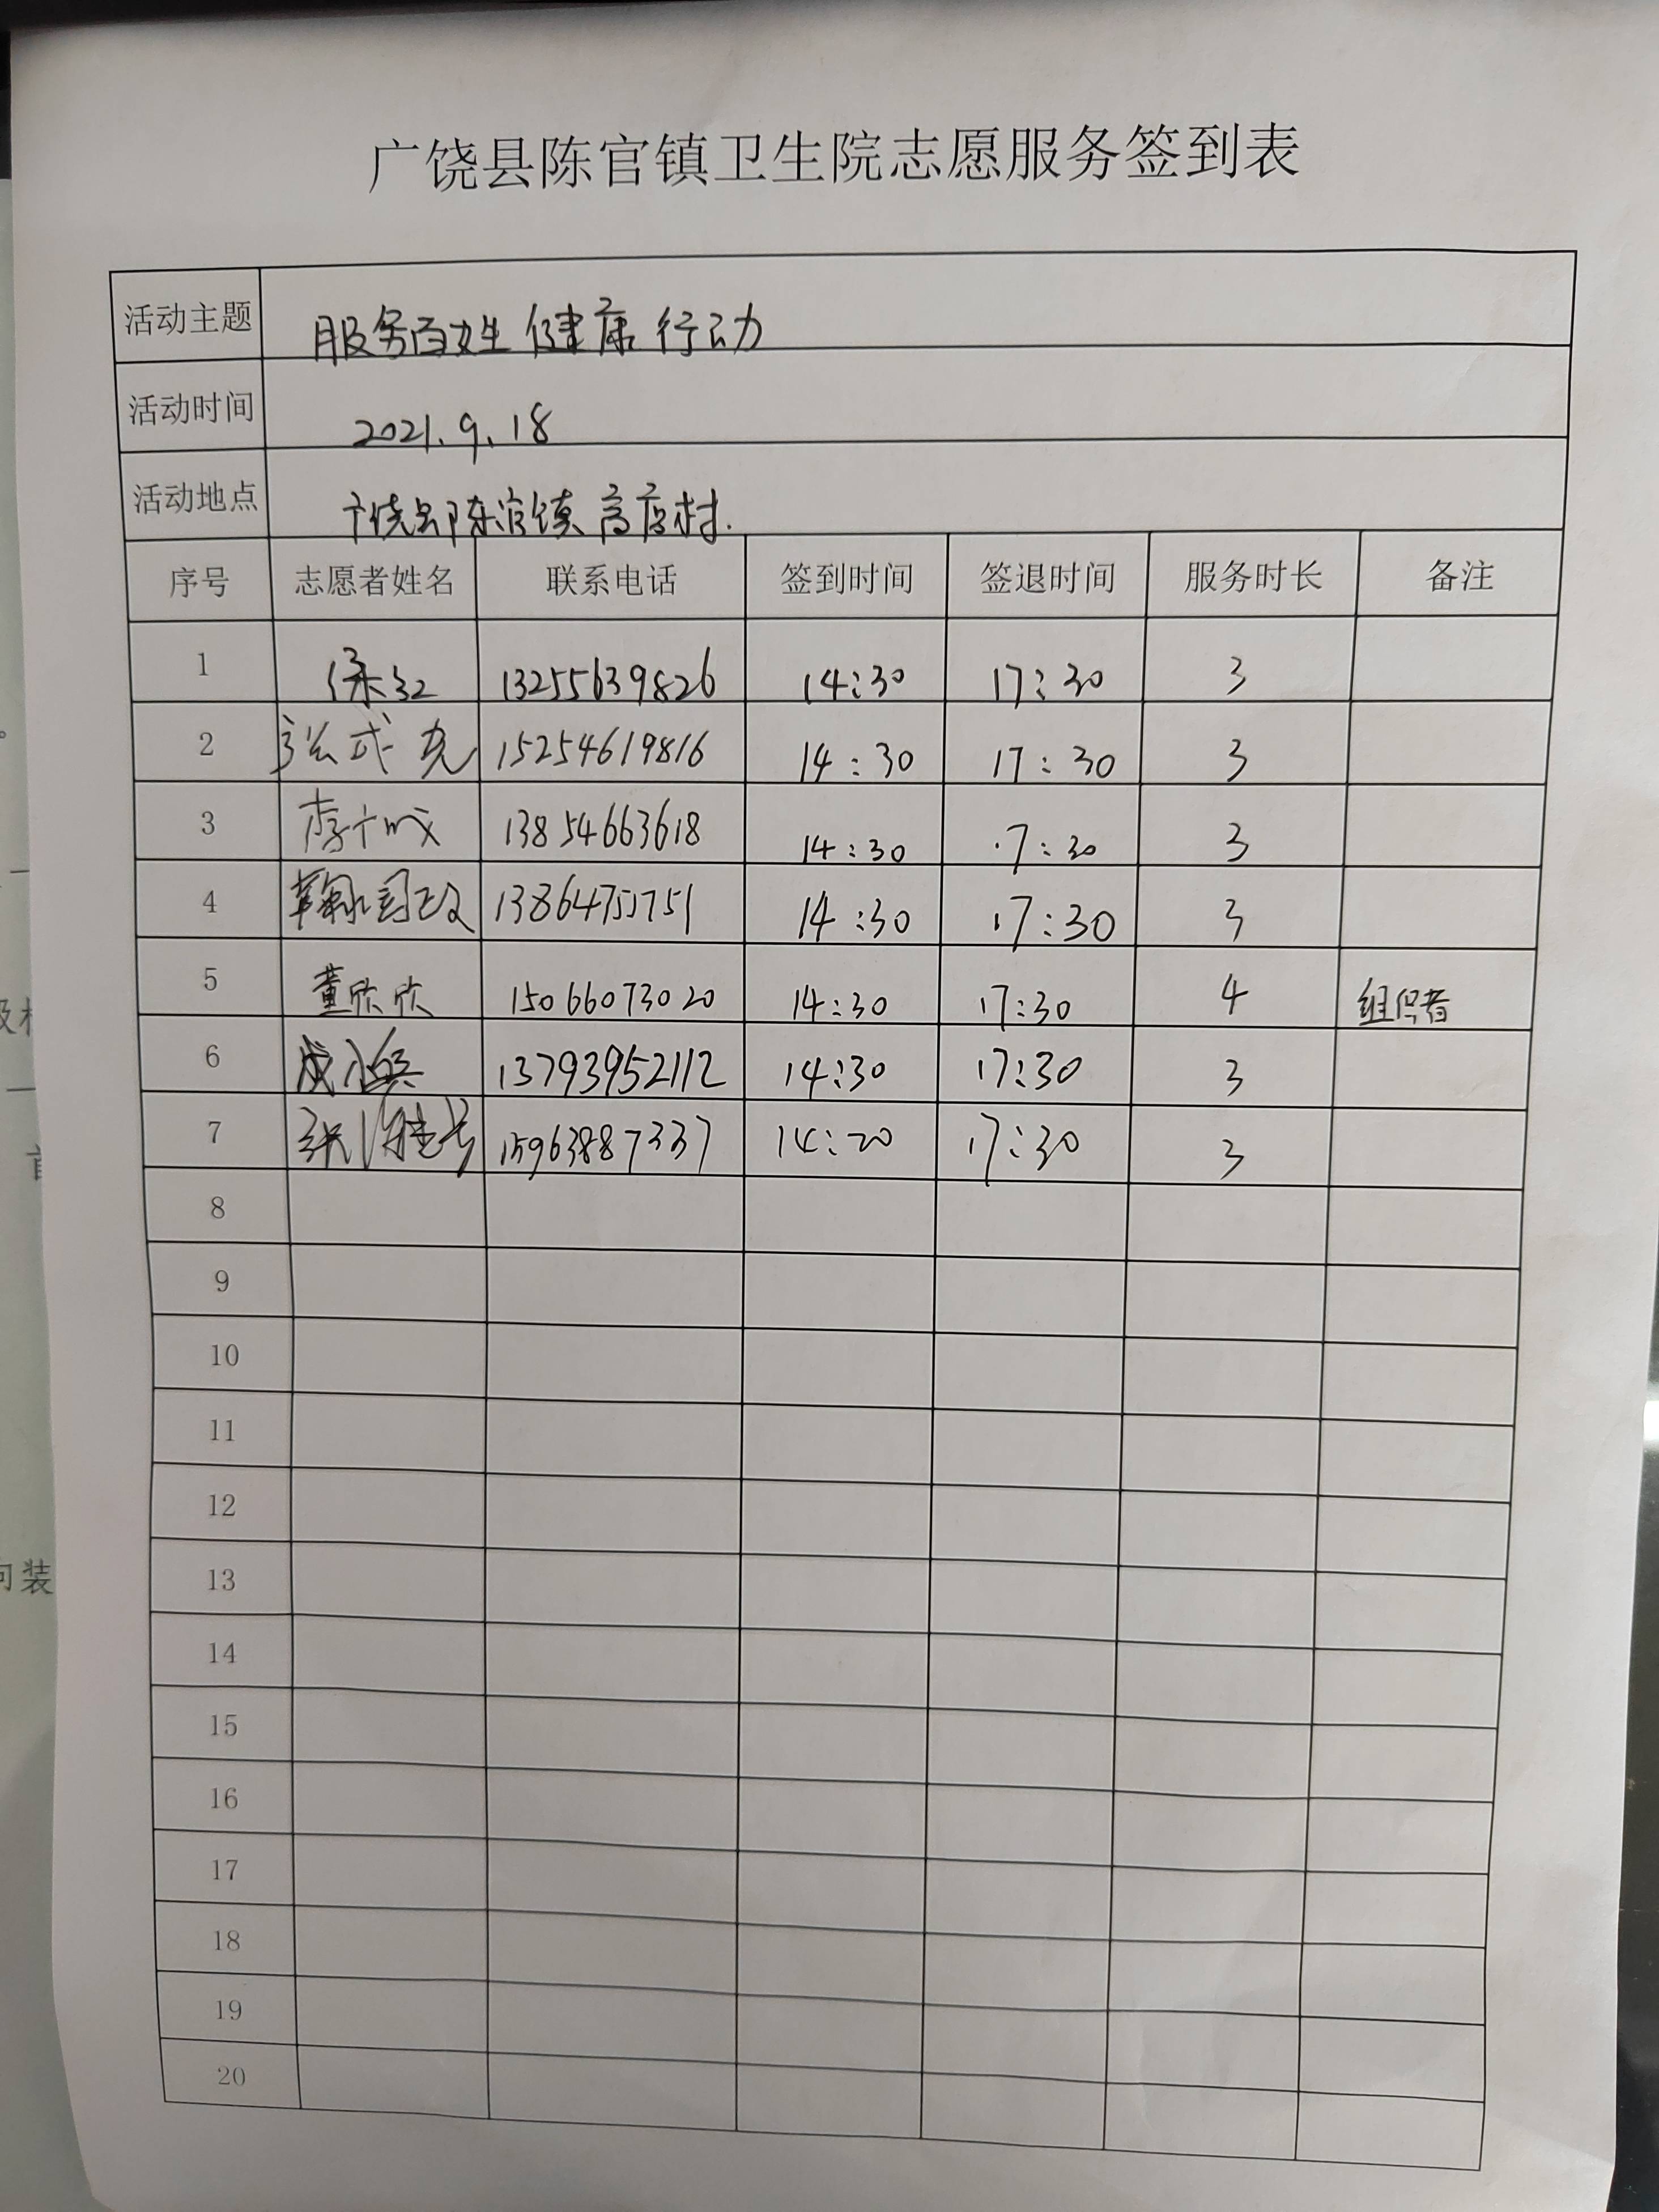 广饶县陈官镇卫生院志愿服务签到表
活动主题 服务百姓 健康 行动
活动时间 2021.9.18
活动地点 广饶县陈官镇 高店村.
序号 志愿者姓名 联系电话 签到时间 签退时间 服务时长 备注
1 13255639826 14:30 17:30 3
2 15254619816 14:30 17:30 3
3 13854663618 14:30 17:30 3
4 14:30 17:30 3
5 董欣欣 15066073020 14:30 17:30 4 组织者
6 13793952112 14:30 17:30 3
7 15963887337 14:20 17:30 3
8
9
10
11
12
13
14
15
16
17
18
19
20
向装